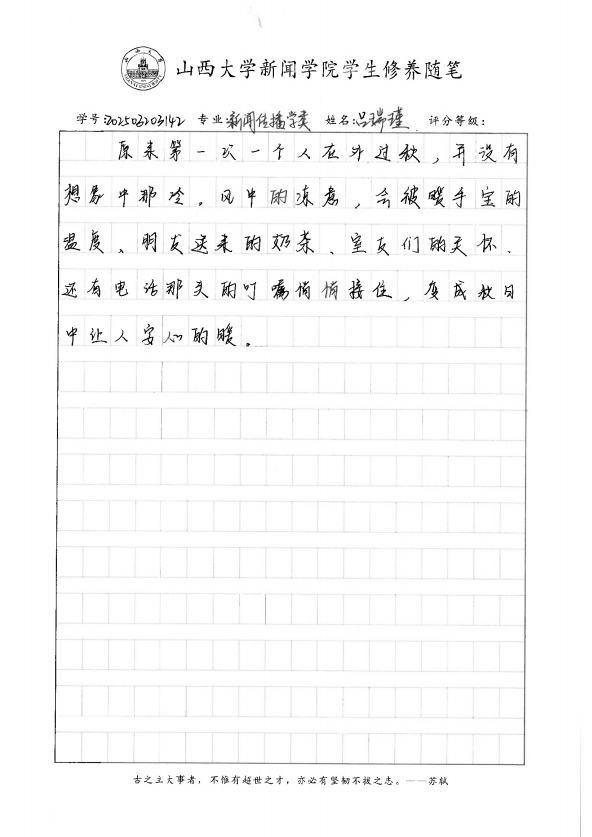 山西大学新闻学院学生修养随笔
学号:202503203142 专业:新闻传播学类 姓名:吕瑞瑾 评分等级:
原来第一次一个人在外过秋，并没有
想象中那冷。风中的凉意，会被暖手宝的
温度、朋友送来的奶茶、室友们的关怀、
还有电话那头的叮嘱悄悄接住，变成秋日
中让人安心的暖。
古之立大事者，不惟有超世之才，亦必有坚韧不拔之志。——苏轼